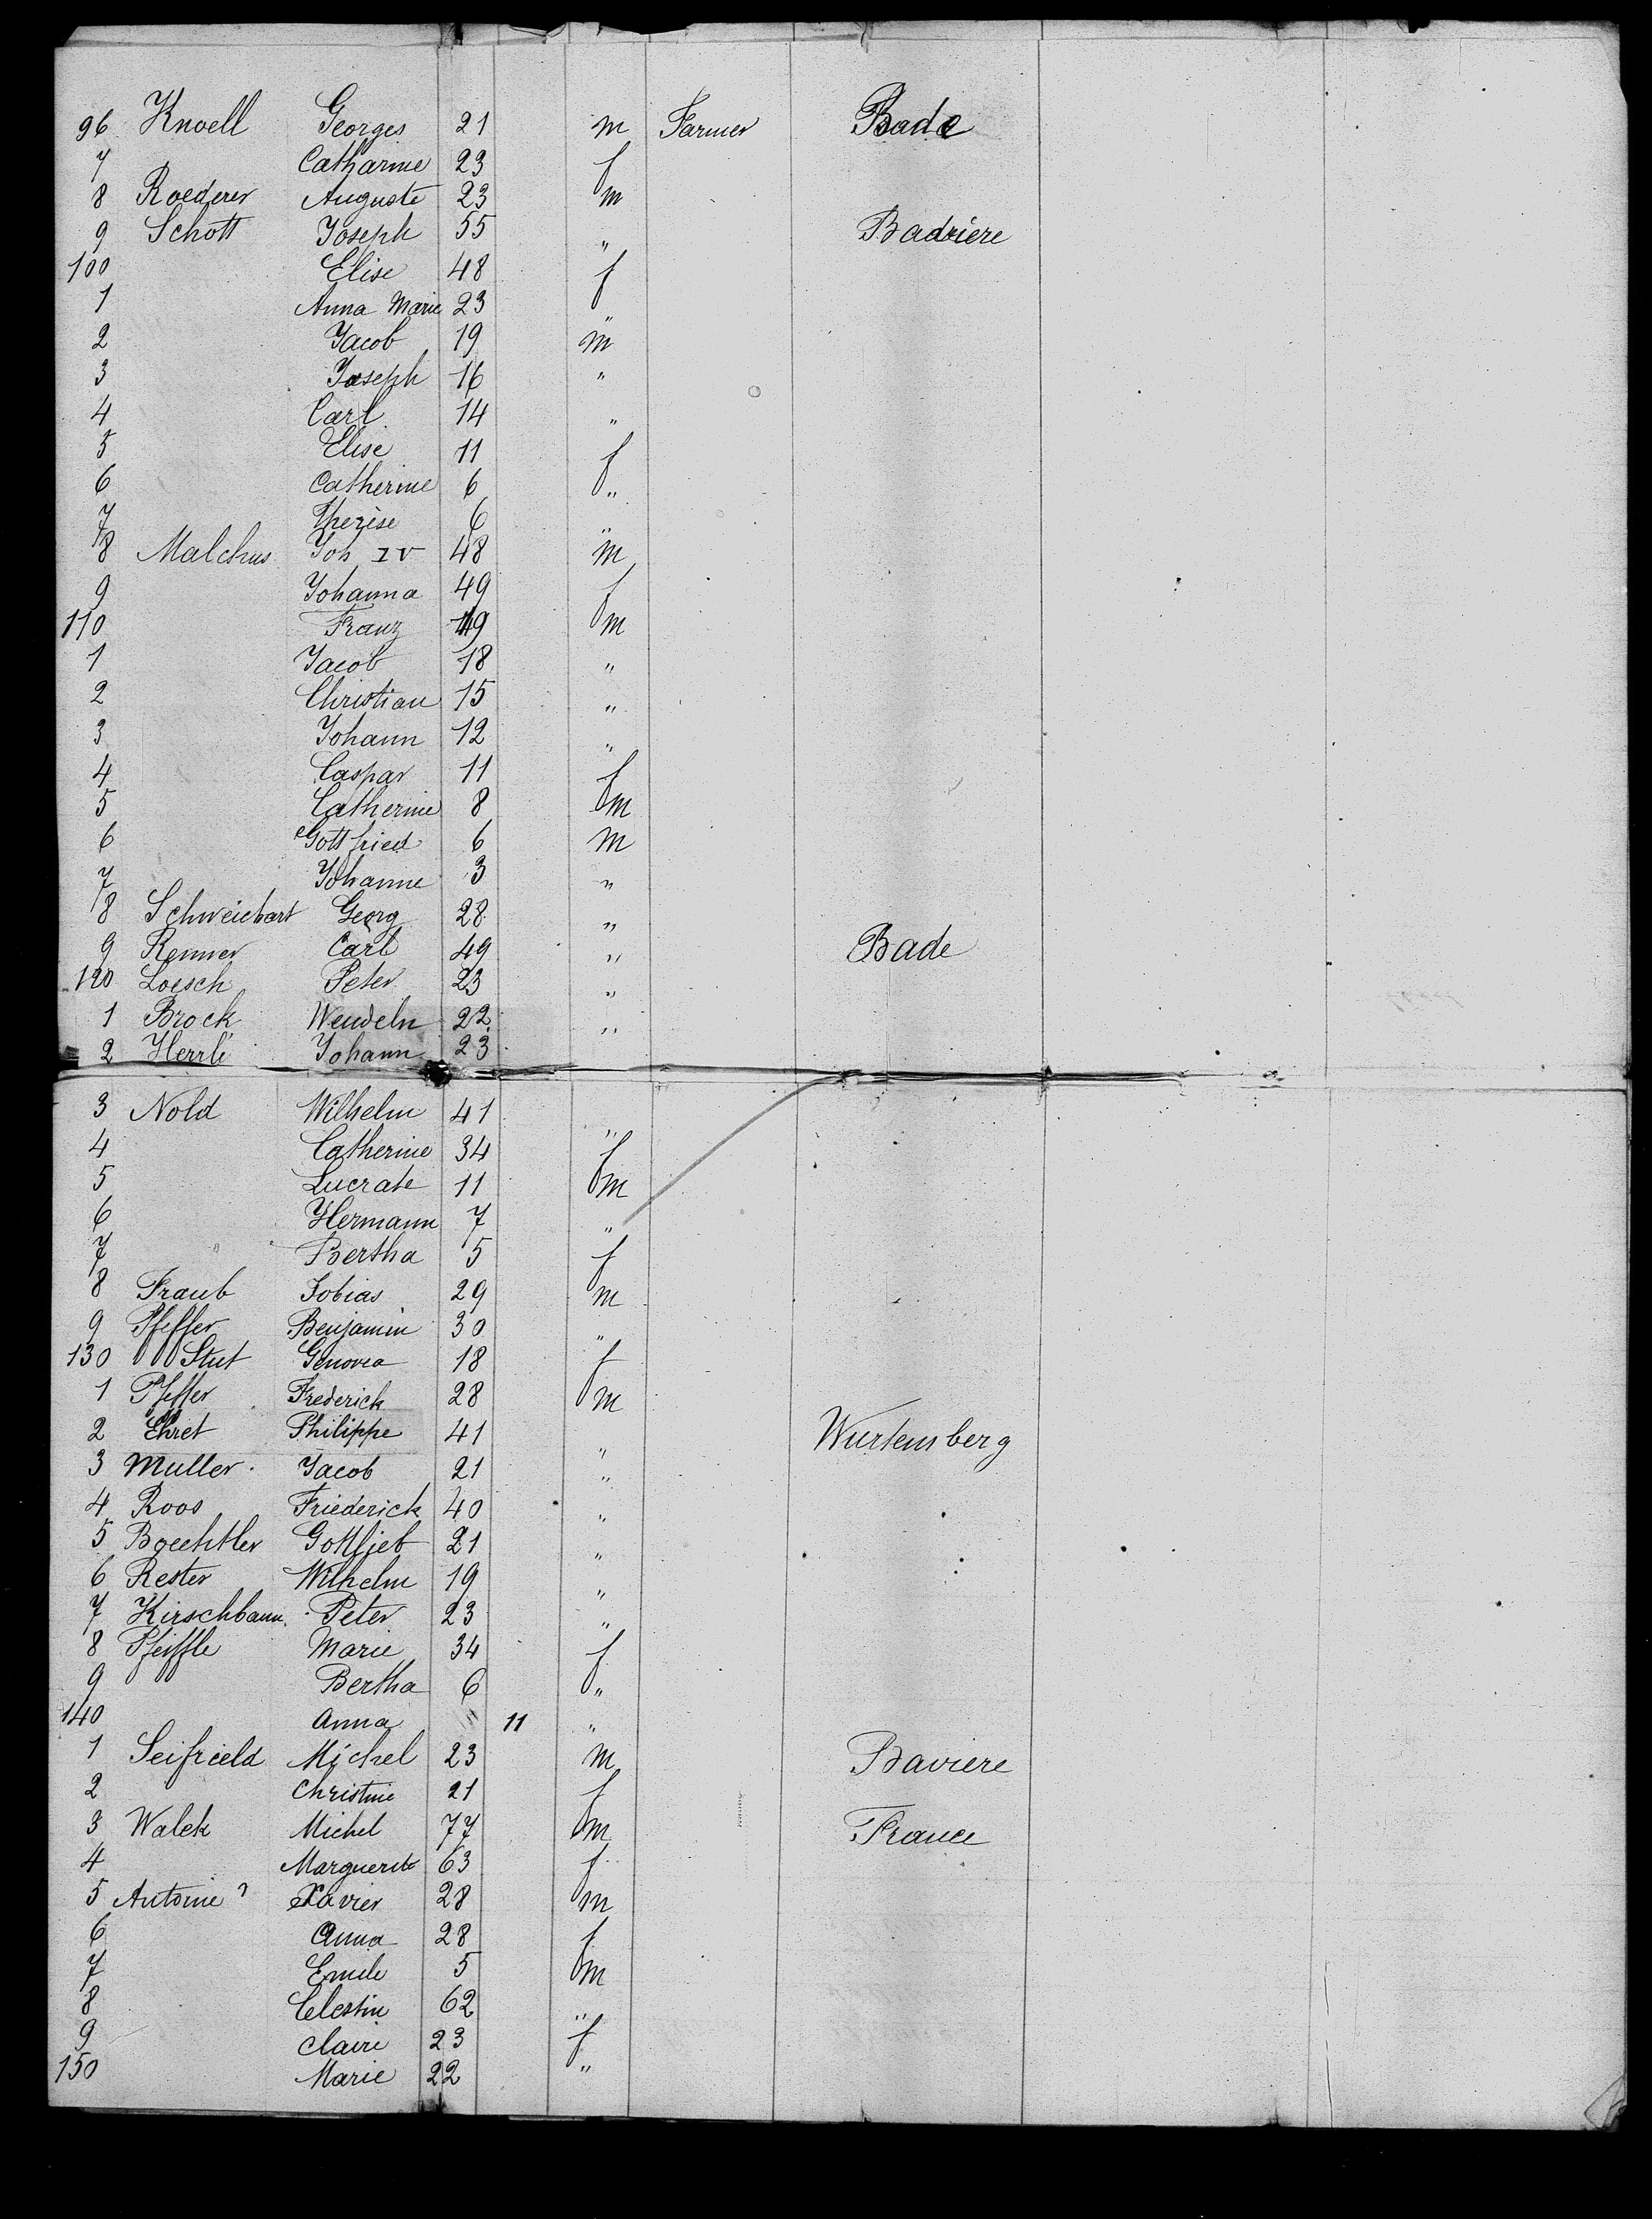 96 Knoell Georges 21 m Farmer Bade
7 Catharine 23 f
8 Roederer Auguste 23 m
9 Schott Joseph 55 " Badriere
100 Elise 48 f
1 Anna Marie 23 "
2 Jacob 19 m
3 Joseph 16 "
4 Carl 14 "
5 Elise 11 f
6 Catherine 6 "
7 Therèse 6 "
8 Malchus Joh IV 48 m
9 Johanna 49 f
110 Franz 19 m
1 Jacob 18 "
2 Christian 15 "
3 Johann 12 "
4 Caspar 11 f
5 Catherine 8 m
6 Gottfried 6 m
7 Johanne 3 "
8 Schweichart Georg 28 "
9 Renner Carl 49 " Bade
120 Loesch Peter 23 "
1 Brock Wendeln 22 "
2 Herrli Johann 23
3 Nold Wilhelm 41 "
4 Catherine 34 f
5 Lucrate 11 m
6 Hermann 7 "
7 Bertha 5 f
8 Traub Tobias 29 m
9 Pfeffer Benjamin 30 "
130 Stut Genovea 18 f
1 Pfeffer Frederich 28 m
2 Ehret Philippe 41 " Wurtensberg
3 Muller Jacob 21 "
4 Roos Friederick 40 "
5 Boechtler Gottlieb 21 "
6 Rester Wilhelm 19 "
7 Kirschbaum Peter 23 "
8 Pfeiffle Marie 34 f
9 Bertha 6 "
140 Anna 11 "
1 Seifrield Michel 23 m Baviere
2 Christine 21 f
3 Walck Michel 77 m France
4 Marguerite 63 f
5 Antoine ? Xavier 28 m
6 Anna 28 f
7 Emile 5 m
8 Celestin 62 "
9 Claire 23 f
150 Marie 22 "